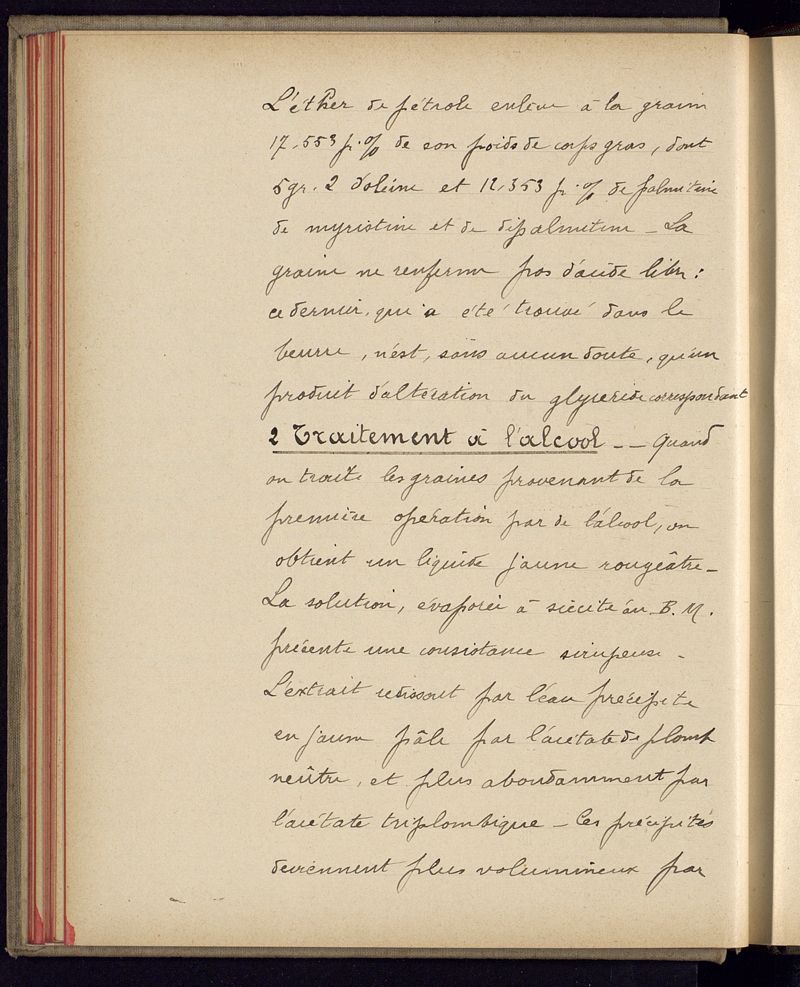 L'éther de pétrole enlève à la graine
17,553 p.% de son poids de corps gras, dont
5gr.2 d'oléine et 12,353 p.% de palmitine
de myristine et de dipalmitine _ La
graine ne renferme pas d'acide libre :
ce dernier, qui a été trouvé dans le
beurre, n'est, sans aucun doute, qu'un
produit d'altération du glyceride correspondant
2 Traitement à l'alcool _ _ Quand
on traite les graines provenant de la
première opération par de l'alcool, on
obtient un liquide jaune rougeâtre _
La solution, évaporée à siccité au B. M.
présente une consistance sirupeuse _
L'extrait redissout par l'eau précipite
en jaune pâle par l'acétate de plomb
neûtre, et plus abondamment par
l'acétate triplombique _ Ces précipités
deviennent plus volumineux par